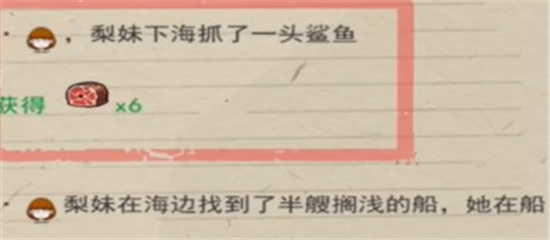 ，梨妹下海抓了一头鲨鱼
获得 x6
梨妹在海边找到了半艘搁浅的船，她在船